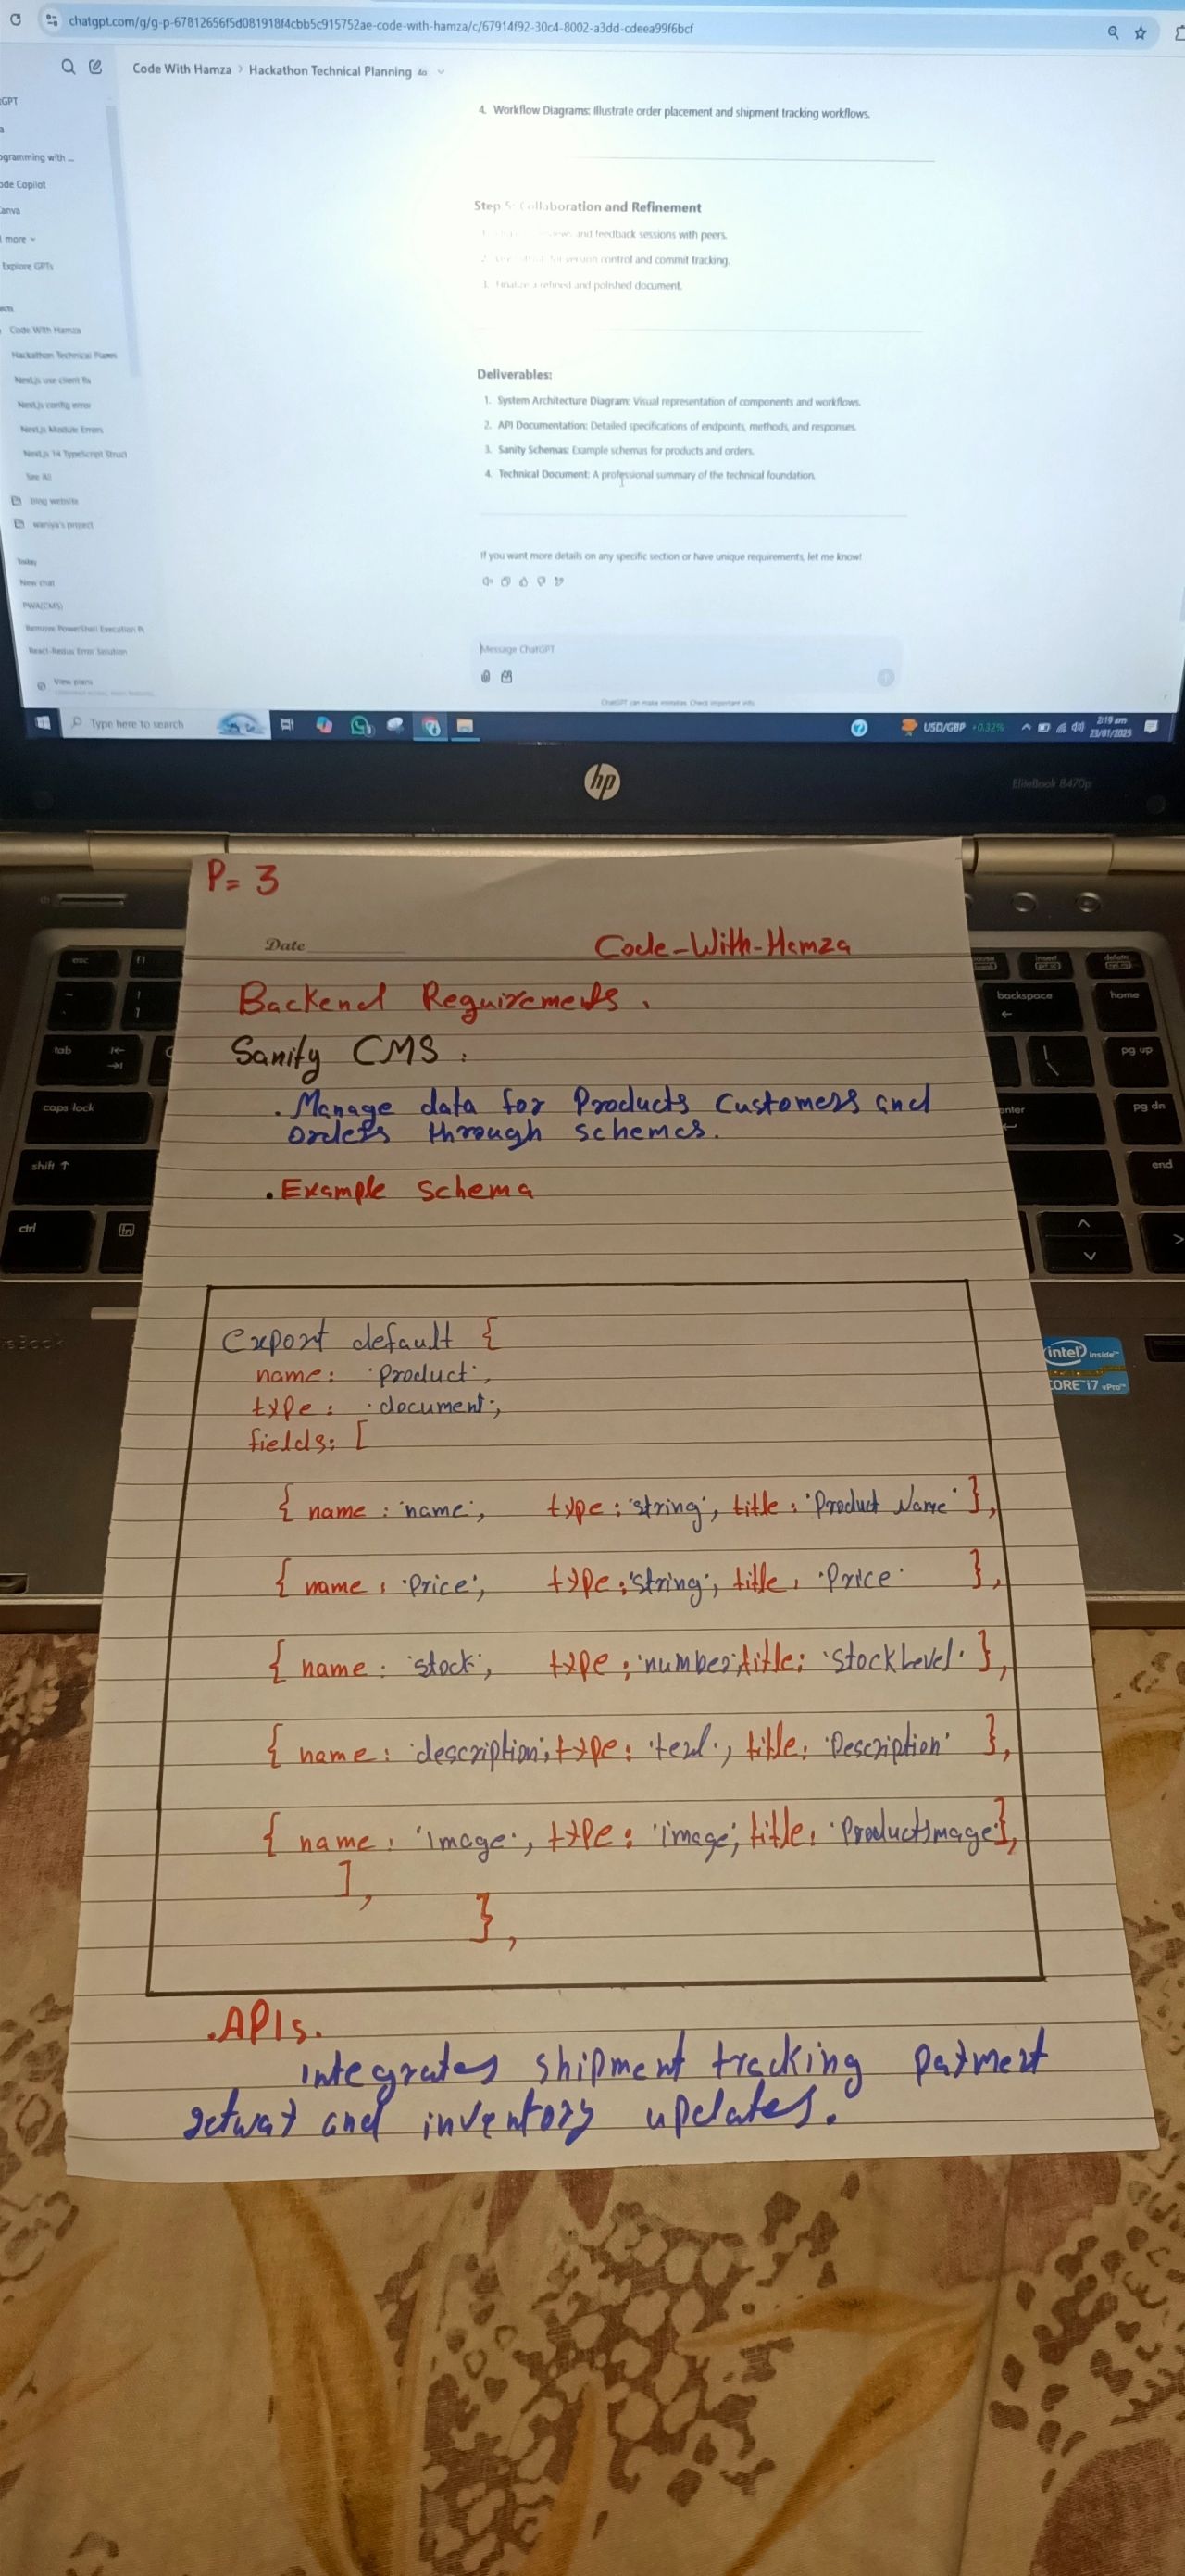 chatgpt.com/g/g-p-67812656f5d081918f4cbb5c915752ae-code-with-hamza/c/67914f92-30c4-8002-a3dd-cdeea99f6bcf
Code With Hamza > Hackathon Technical Planning 4o
GPT
ogramming with ...
ode Copilot
anva
more
Explore GPTs
Code With Hamza
Hackathon Technical Planni
Next.js use client fix
Next.js config error
Next.js Module Errors
Next.js 14 TypeScript Struct
See All
blog website
waniya's project
Today
New chat
PWA(CMS)
Remove PowerShell Execution Po
React-Redux Error Solution
View plans
4. Workflow Diagrams: Illustrate order placement and shipment tracking workflows.
Step 5: Collaboration and Refinement
and feedback sessions with peers.
2. for version control and commit tracking.
3. Finalize a refined and polished document.
Deliverables:
1. System Architecture Diagram: Visual representation of components and workflows.
2. API Documentation: Detailed specifications of endpoints, methods, and responses.
3. Sanity Schemas: Example schemas for products and orders.
4. Technical Document: A professional summary of the technical foundation.
If you want more details on any specific section or have unique requirements, let me know!
Message ChatGPT
ChatGPT can make mistakes. Check important info.
Type here to search
USD/GBP +0.32%
2:19 am
23/01/2025
hp
EliteBook 8470p
esc f1
tab
caps lock
shift
ctrl fn
insert delete
backspace home
pg up
enter pg dn
end
intel inside™
CORE i7 vPro™
P= 3
Date
Code-With-Hamza
Backend Requirements.
Sanity CMS:
. Manage data for Products Customers and
orders through schemas.
. Example schema
export default {
name: 'Product',
type: 'document',
fields: [
{ name: 'name', type: 'string', title: 'Product Name' },
{ name: 'Price', type: 'string', title: 'Price' },
{ name: 'stock', type: 'number' title: 'Stock Level' },
{ name: 'description', type: 'text', title: 'Description' },
{ name: 'image', type: 'image', title: 'Product Image' },
],
},
.APIs.
integrates shipment tracking payment
getway and inventory updates.